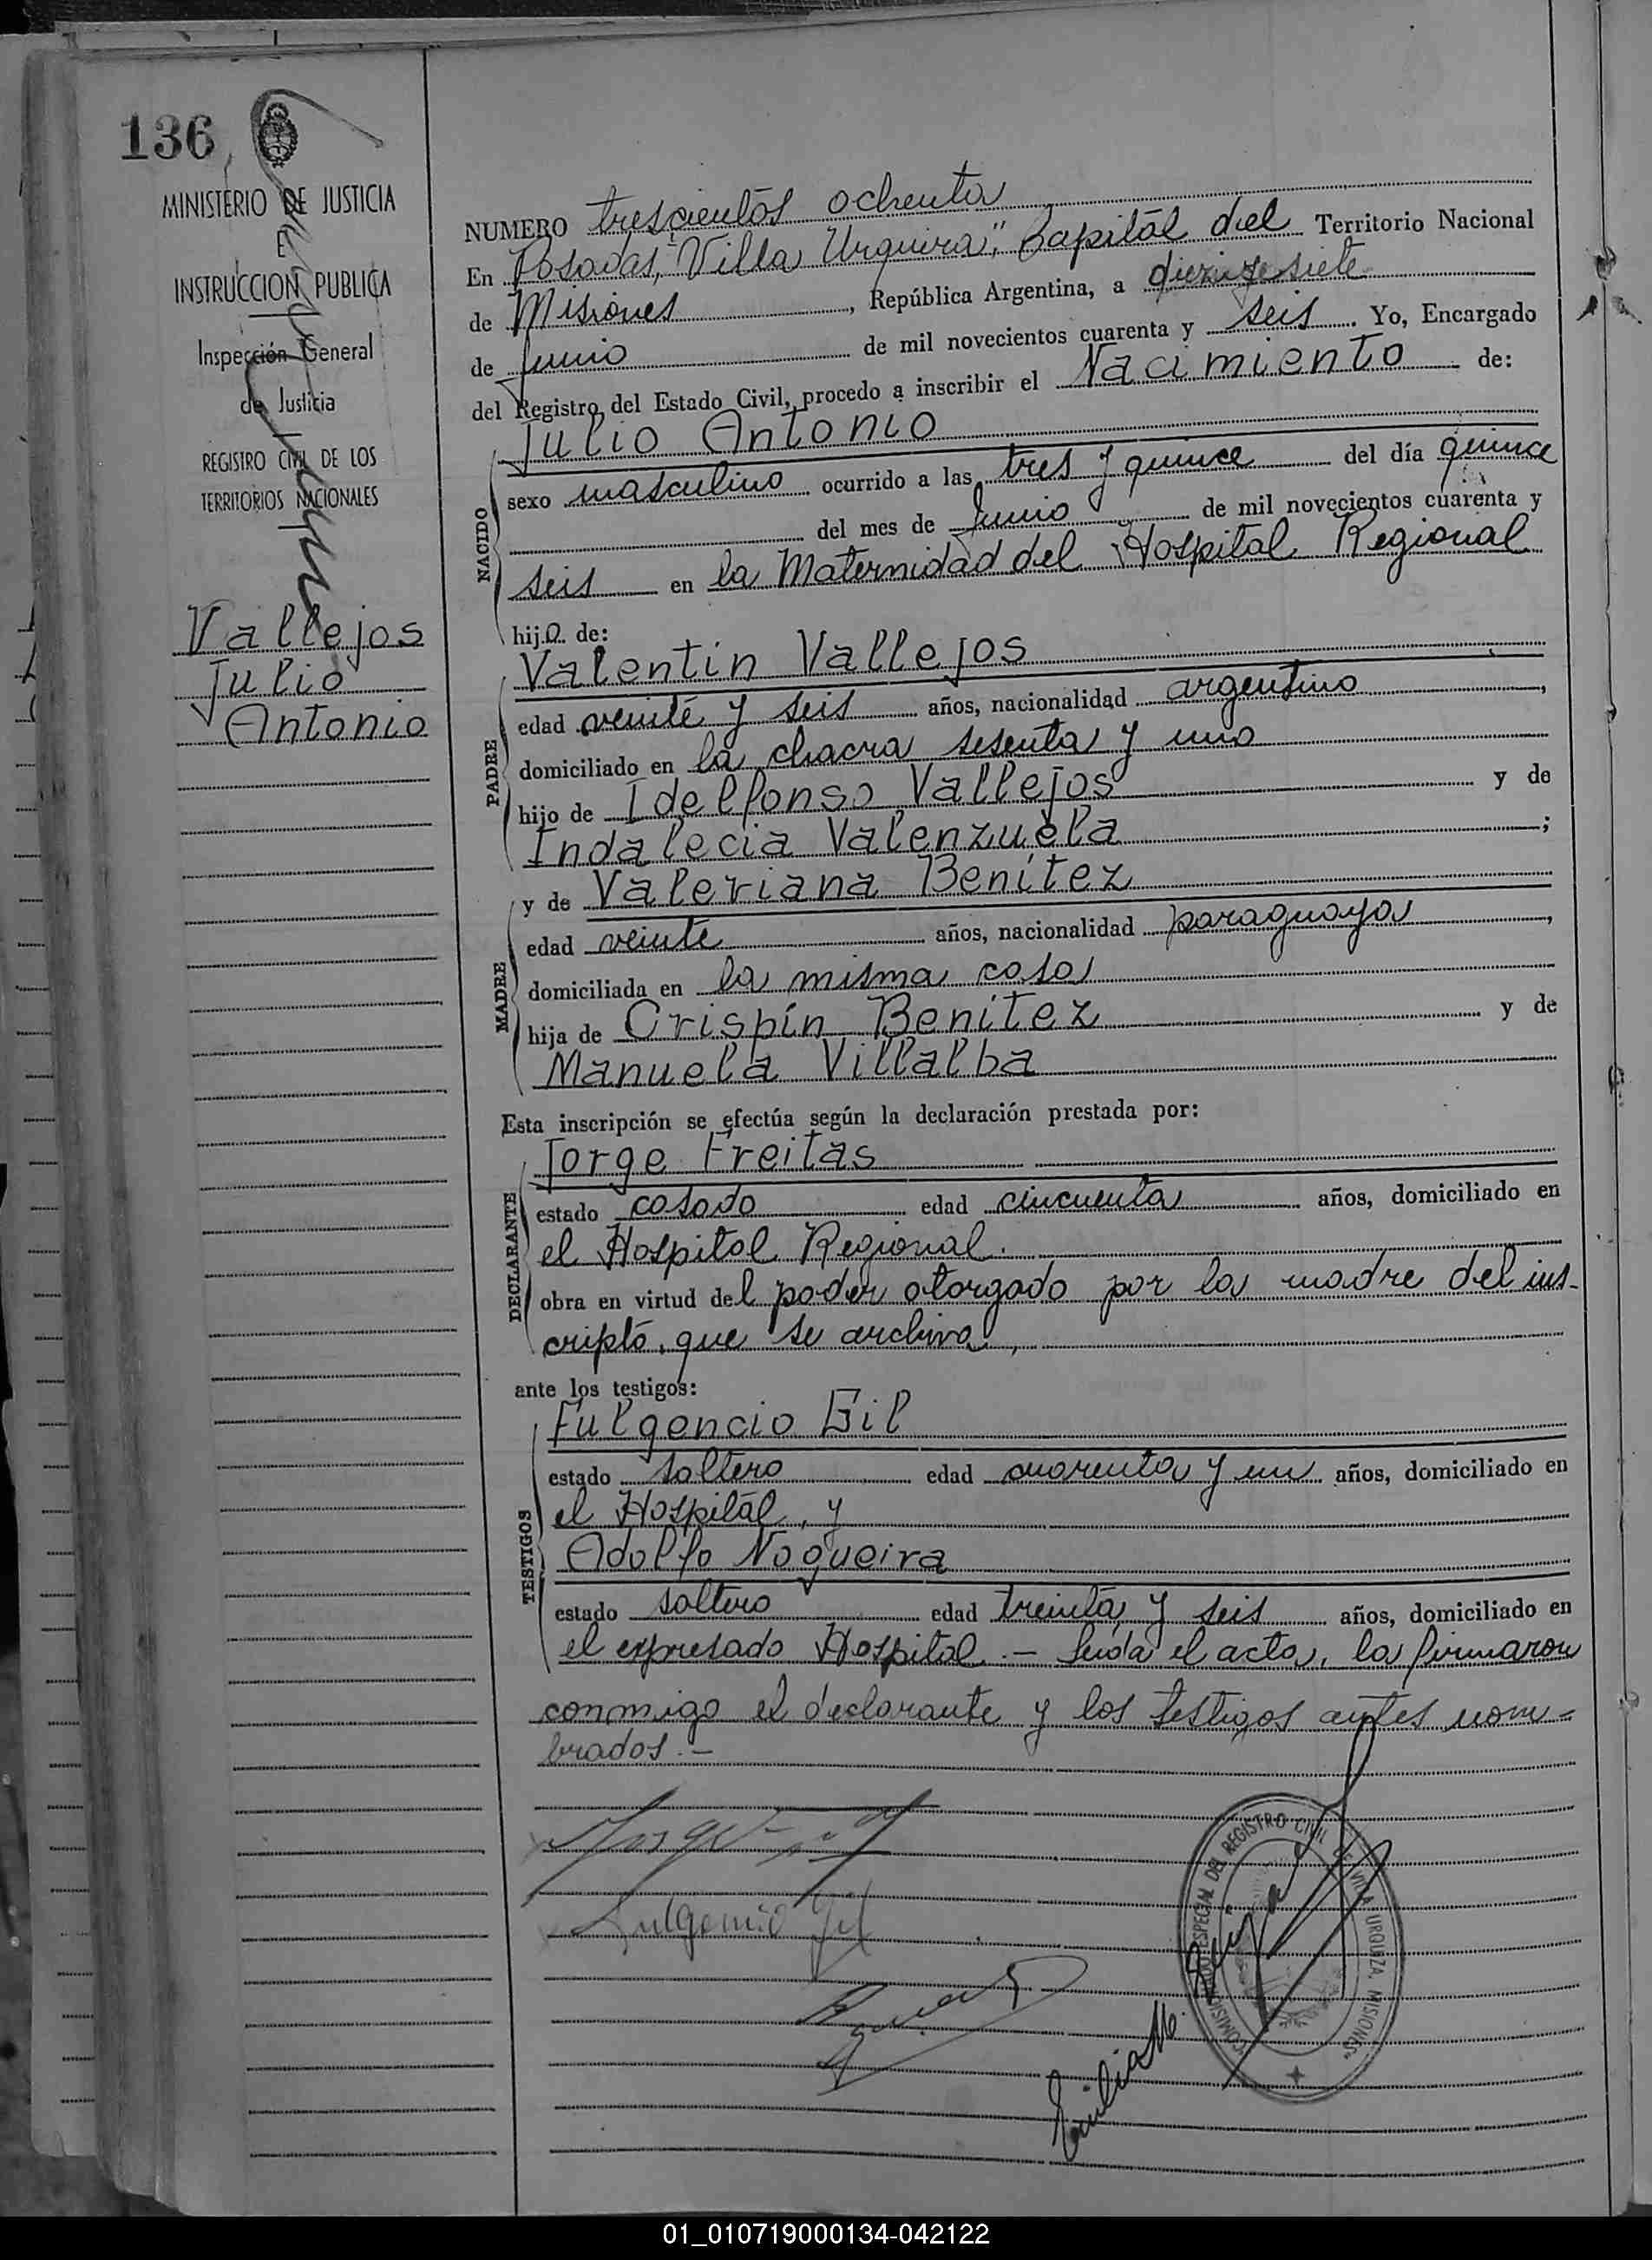 136
MINISTERIO DE JUSTICIA
E
INSTRUCCION PUBLICA
Inspección General
de Justicia
REGISTRO CIVIL DE LOS
TERRITORIOS NACIONALES
Vallejos
Julio
Antonio
NUMERO trescientos ochenta
En Posadas, "Villa Urquiza", Capital del Territorio Nacional
de Misiones, República Argentina, a diez y siete
de Junio de mil novecientos cuarenta y seis. Yo, Encargado
del Registro del Estado Civil, procedo a inscribir el Nacimiento de:
NACIDO
Julio Antonio
sexo masculino ocurrido a las tres y quince del día quince
del mes de Junio de mil novecientos cuarenta y
seis en la Maternidad del Hospital Regional
hijo de:
PADRE
Valentin Vallejos
edad veinte y seis años, nacionalidad argentino,
domiciliado en la chacra sesenta y uno
hijo de Idelfonso Vallejos y de
Indalecia Valenzuela;
MADRE
y de Valeriana Benítez
edad veinte años, nacionalidad paraguaya,
domiciliada en la misma casa
hija de Crispín Benítez y de
Manuela Villalba
Esta inscripción se efectúa según la declaración prestada por:
DECLARANTE
Jorge Freitas
estado casado edad cincuenta años, domiciliado en
el Hospital Regional.
obra en virtud del poder otorgado por la madre del ins-
cripto, que se archiva,
ante los testigos:
TESTIGOS
Fulgencio Gil
estado soltero edad cuarenta y un años, domiciliado en
el Hospital, y
Adolfo Nogueira
estado soltero edad treinta y seis años, domiciliado en
el expresado Hospital.- Leída el acta, la firmaron
conmigo el declarante y los testigos antes nom-
brados.-
Fulgencio Gil
Emilia M.
COMISIONADO ESPECIAL DEL REGISTRO CIVIL DE VILLA URQUIZA, MISIONES
01_010719000134-042122